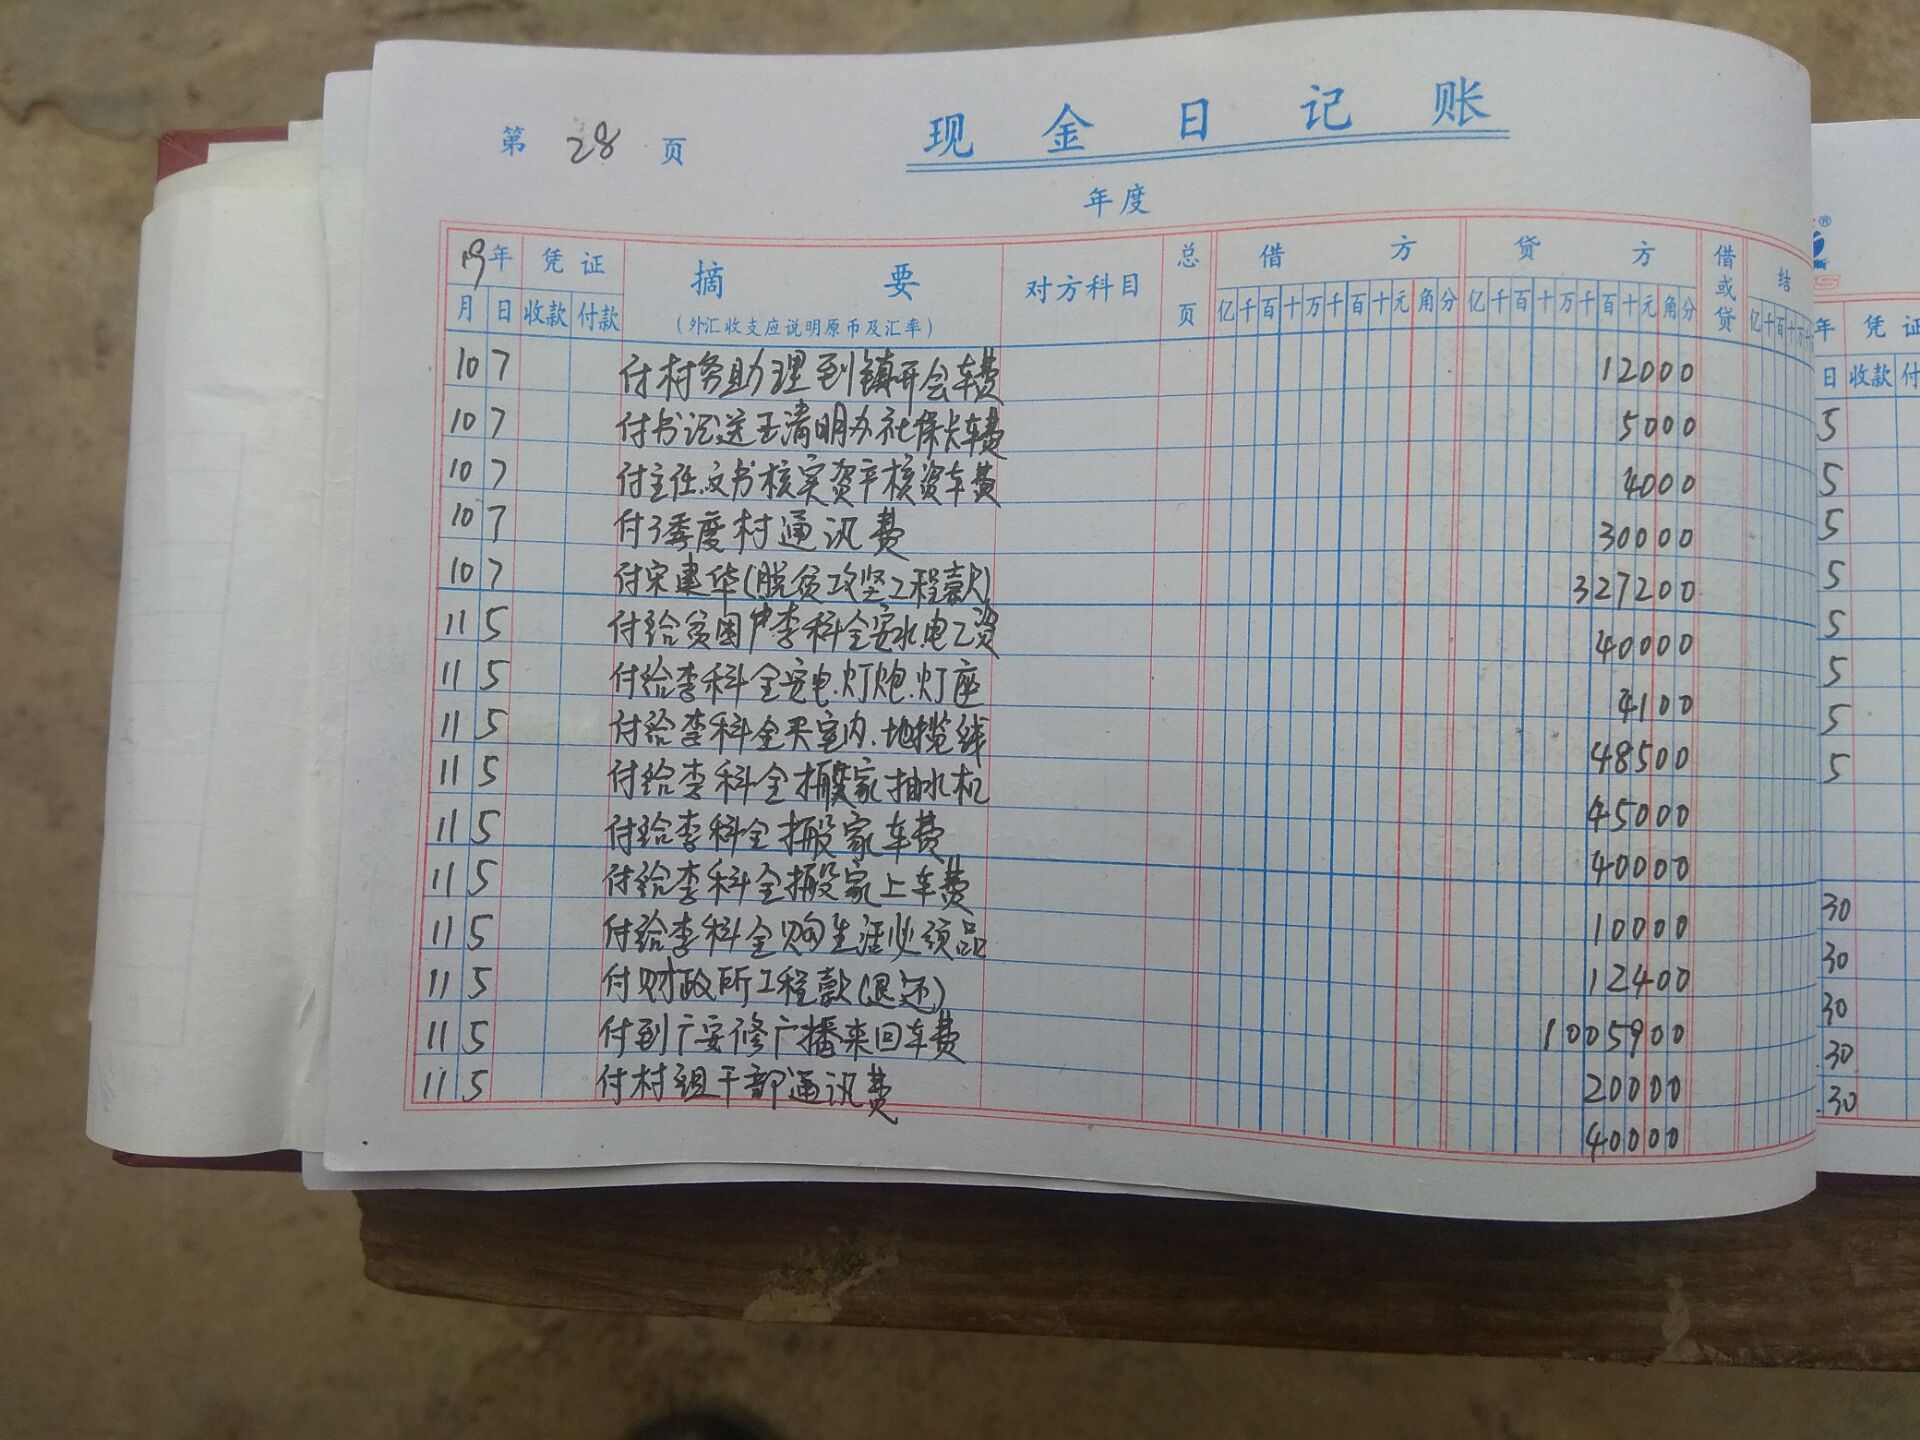 第 28 页
现金日记账
年度
19年 凭证 摘要 对方科目 总页 借方 贷方 借或贷 结
月 日 收款 付款 (外汇收支应说明原币及汇率) 亿千百十万千百十元角分 亿千百十万千百十元角分 亿千百十万
10 7 付村务助理到镇开会车费 12000
10 7 付书记送王清明办社保卡车费 5000
10 7 付主任、文书核实资产核资车费 4000
10 7 付3季度村通讯费 30000
10 7 付宋建华(脱贫攻坚工程款) 327200
11 5 付给贫困户李科全安水电工资 40000
11 5 付给李科全安电.灯炮.灯座 4100
11 5 付给李科全买室内.地揽线 48500
11 5 付给李科全搬家抽水机 45000
11 5 付给李科全搬家车费 40000
11 5 付给李科全搬家上车费 10000
11 5 付给李科全购生活必须品 12400
11 5 付财政所工程款(退还) 1005900
11 5 付到广安修广播来回车费 20000
11 5 付村组干部通讯费 40000
年 凭证
日 收款 付
5
5
5
5
5
5
5
5
30
30
30
30
30